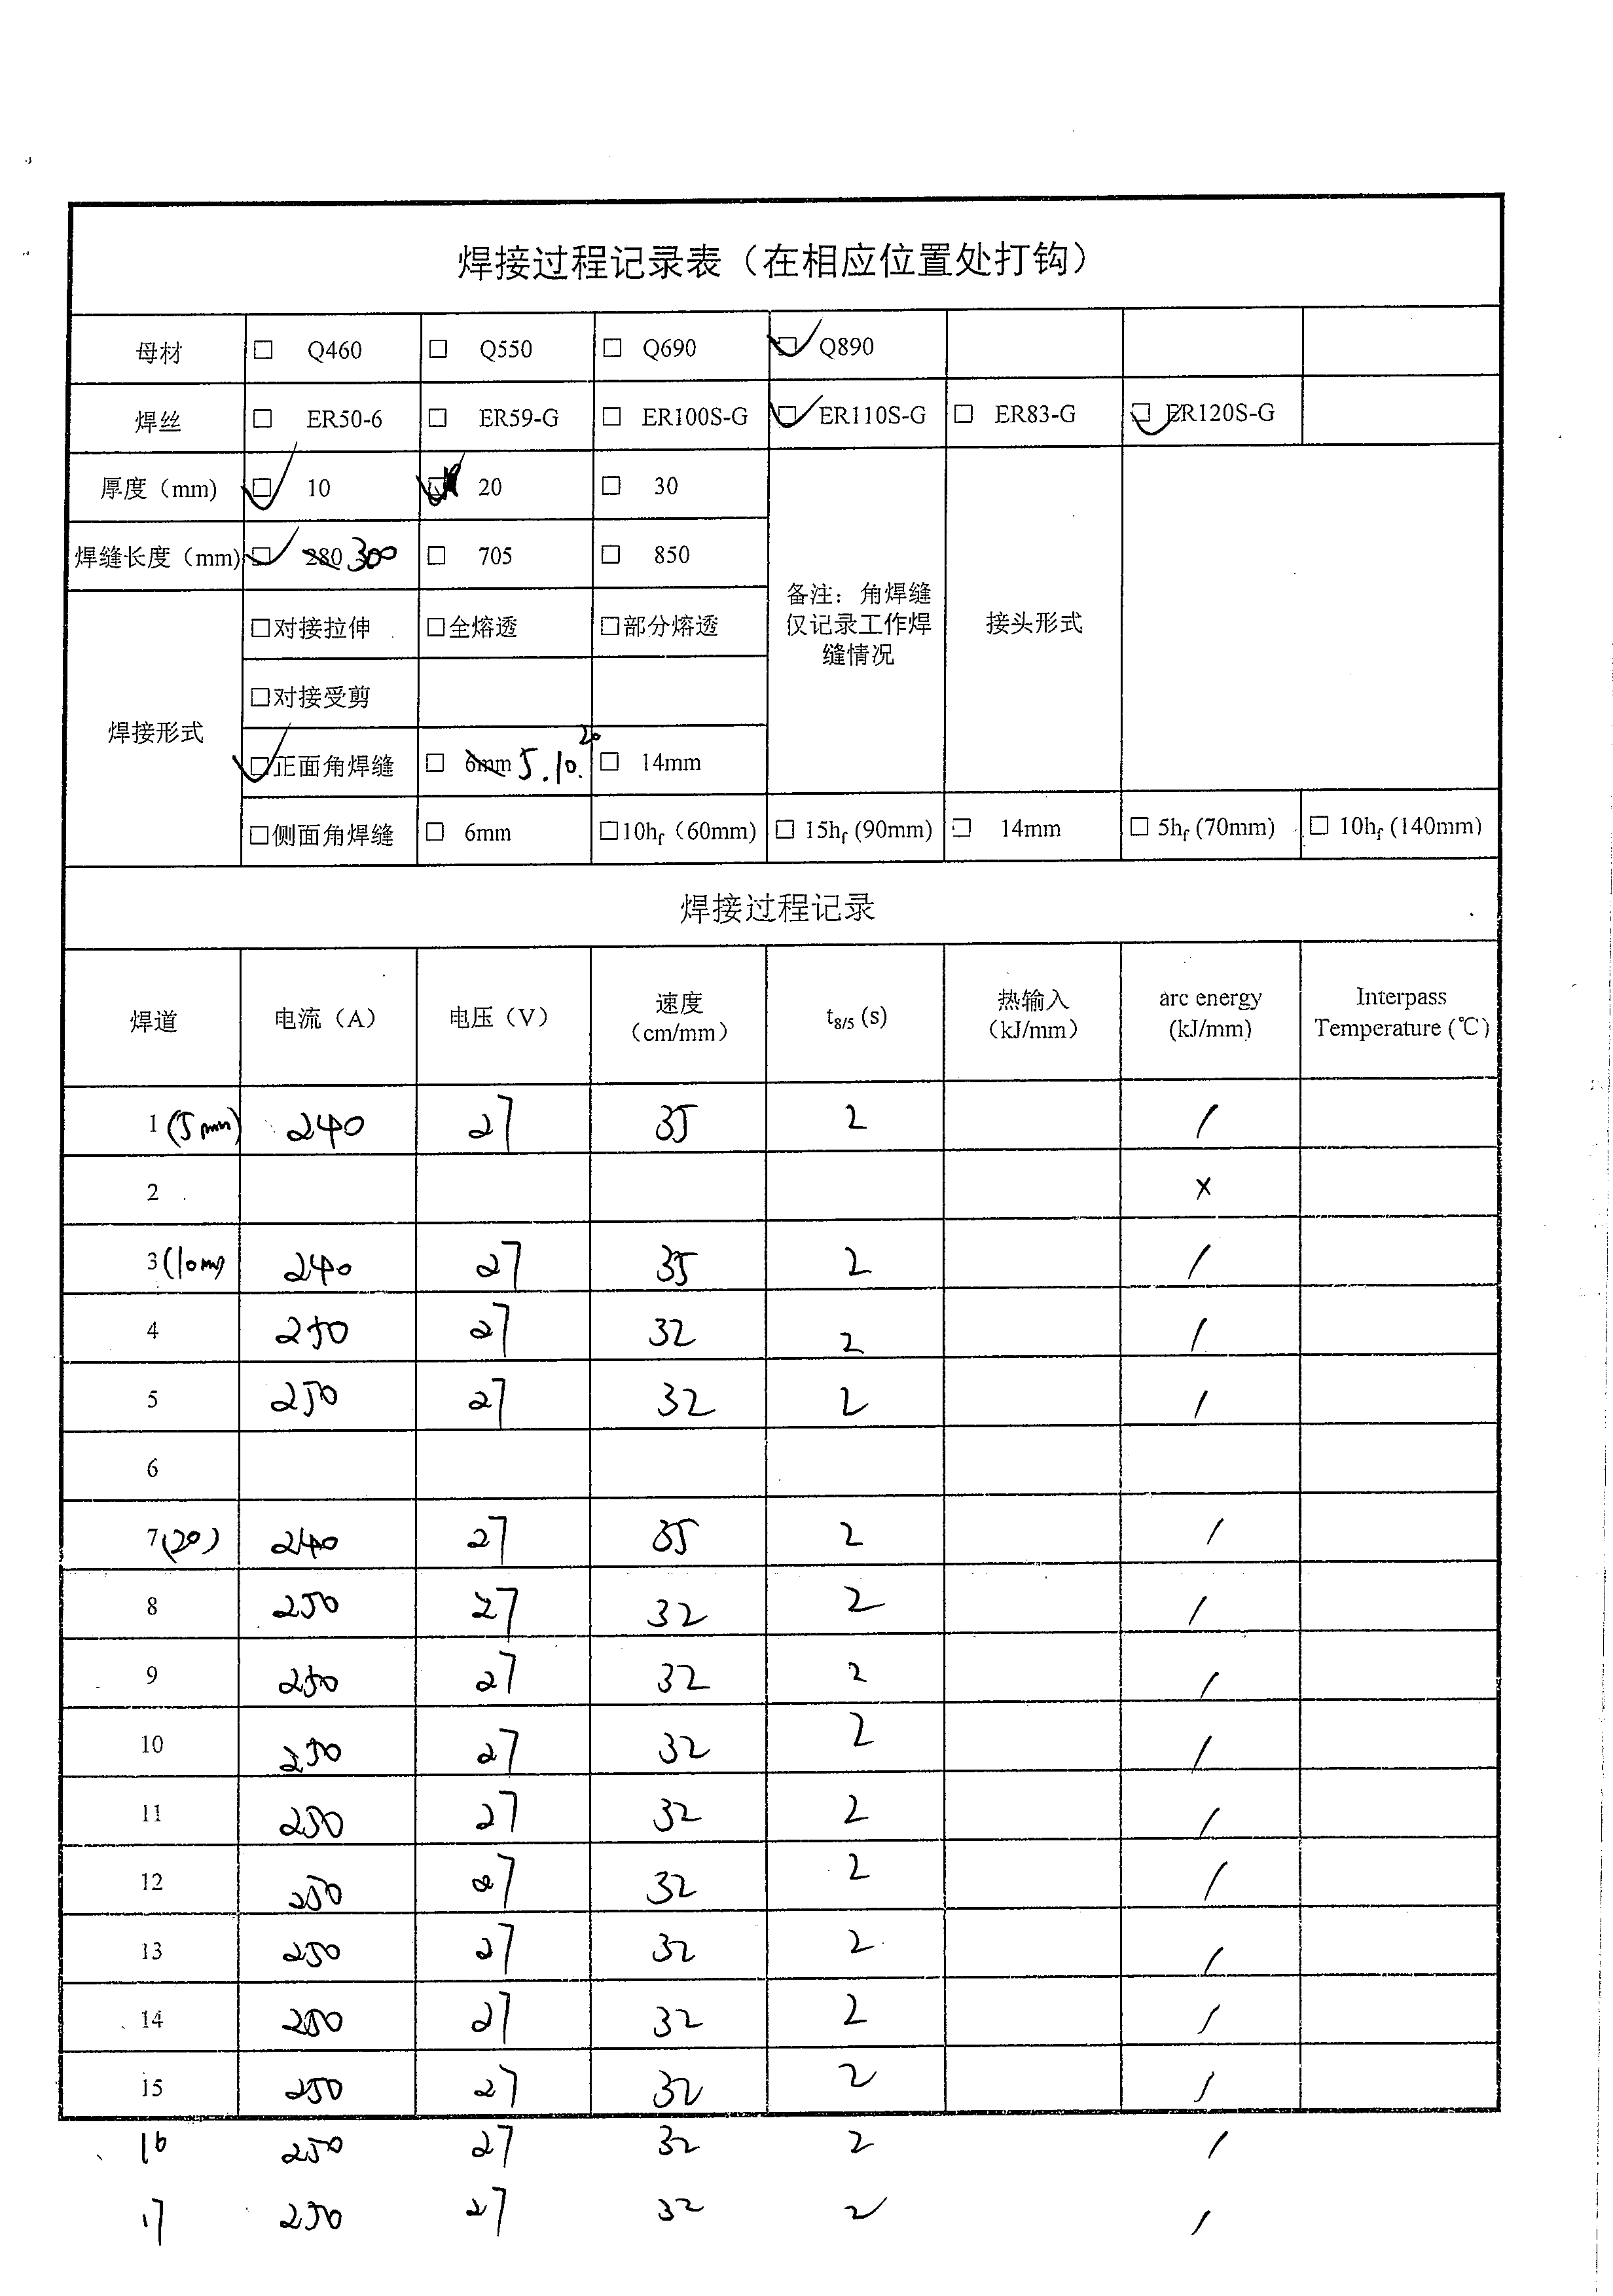 焊接过程记录表（在相应位置处打钩）
母材 □ Q460 □ Q550 □ Q690 ☑ Q890
焊丝 □ ER50-6 □ ER59-G □ ER100S-G ☑ ER110S-G □ ER83-G ☑ ER120S-G
厚度（mm) ☑ 10 ☑ 20 □ 30
焊缝长度（mm) ☑ 280 300 □ 705 □ 850
备注：角焊缝
仅记录工作焊
缝情况
接头形式
焊接形式
□对接拉伸 □全熔透 □部分熔透
□对接受剪
☑正面角焊缝 □ 6mm 5.10.20 □ 14mm
□侧面角焊缝 □ 6mm □10hf（60mm) □ 15hf (90mm) □ 14mm □ 5hf (70mm) □ 10hf (140mm)
焊接过程记录
焊道 电流（A） 电压（V） 速度（cm/mm） t8/5 (s) 热输入（kJ/mm） arc energy (kJ/mm) Interpass Temperature (℃)
1 (5mm) 240 27 35 2 /
2 ×
3 (10mm) 240 27 35 2 /
4 250 27 32 2 /
5 250 27 32 2 /
6
7 (20) 240 27 35 2 /
8 250 27 32 2 /
9 250 27 32 2 /
10 250 27 32 2 /
11 250 27 32 2 /
12 250 27 32 2 /
13 250 27 32 2 /
14 250 27 32 2 /
15 250 27 32 2 /
16 250 27 32 2 /
17 250 27 32 2 /